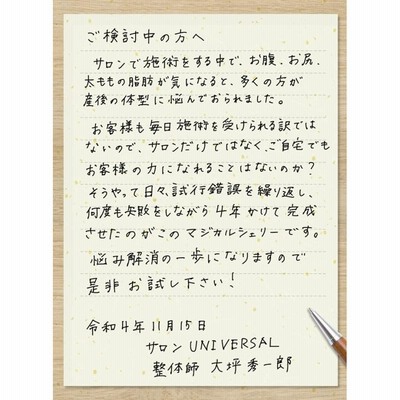 ご検討中の方へ
サロンで施術をする中で、お腹、お尻、
太ももの脂肪が気になると、多くの方が
産後の体型に悩んでおられました。
お客様も毎日施術を受けられる訳では
ないので、サロンだけではなく、ご自宅でも
お客様の力になれることはないのか?
そうやって日々、試行錯誤を繰り返し、
何度も失敗をしながら4年かけて完成
させたのがこのマジカルシェリーです。
悩み解消の一歩になりますので
是非お試し下さい!
令和4年11月15日
サロンUNIVERSAL
整体師 大坪秀一郎